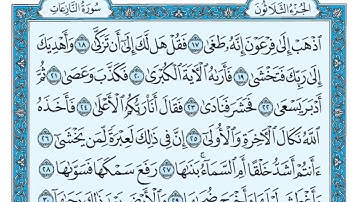 الجزء الثلاثون سورة النازعات
ٱذْهَبْ إِلَىٰ فِرْعَوْنَ إِنَّهُۥ طَغَىٰ ١٧ فَقُلْ هَل لَّكَ إِلَىٰٓ أَن تَزَكَّىٰ ١٨ وَأَهْدِيَكَ
إِلَىٰ رَبِّكَ فَتَخْشَىٰ ١٩ فَأَرَىٰهُ ٱلْـَٔايَةَ ٱلْكُبْرَىٰ ٢٠ فَكَذَّبَ وَعَصَىٰ ٢١ ثُمَّ
أَدْبَرَ يَسْعَىٰ ٢٢ فَحَشَرَ فَنَادَىٰ ٢٣ فَقَالَ أَنَا۠ رَبُّكُمُ ٱلْأَعْلَىٰ ٢٤ فَأَخَذَهُ
ٱللَّهُ نَكَالَ ٱلْـَٔاخِرَةِ وَٱلْأُولَىٰٓ ٢٥ إِنَّ فِى ذَٰلِكَ لَعِبْرَةً لِّمَن يَخْشَىٰٓ ٢٦
ءَأَنتُمْ أَشَدُّ خَلْقًا أَمِ ٱلسَّمَآءُ ۚ بَنَىٰهَا ٢٧ رَفَعَ سَمْكَهَا فَسَوَّىٰهَا ٢٨
وَأَغْطَشَ لَيْلَهَا وَأَخْرَجَ ضُحَىٰهَا ٢٩ وَٱلْأَرْضَ بَعْدَ ذَٰلِكَ دَحَىٰهَآ ٣٠